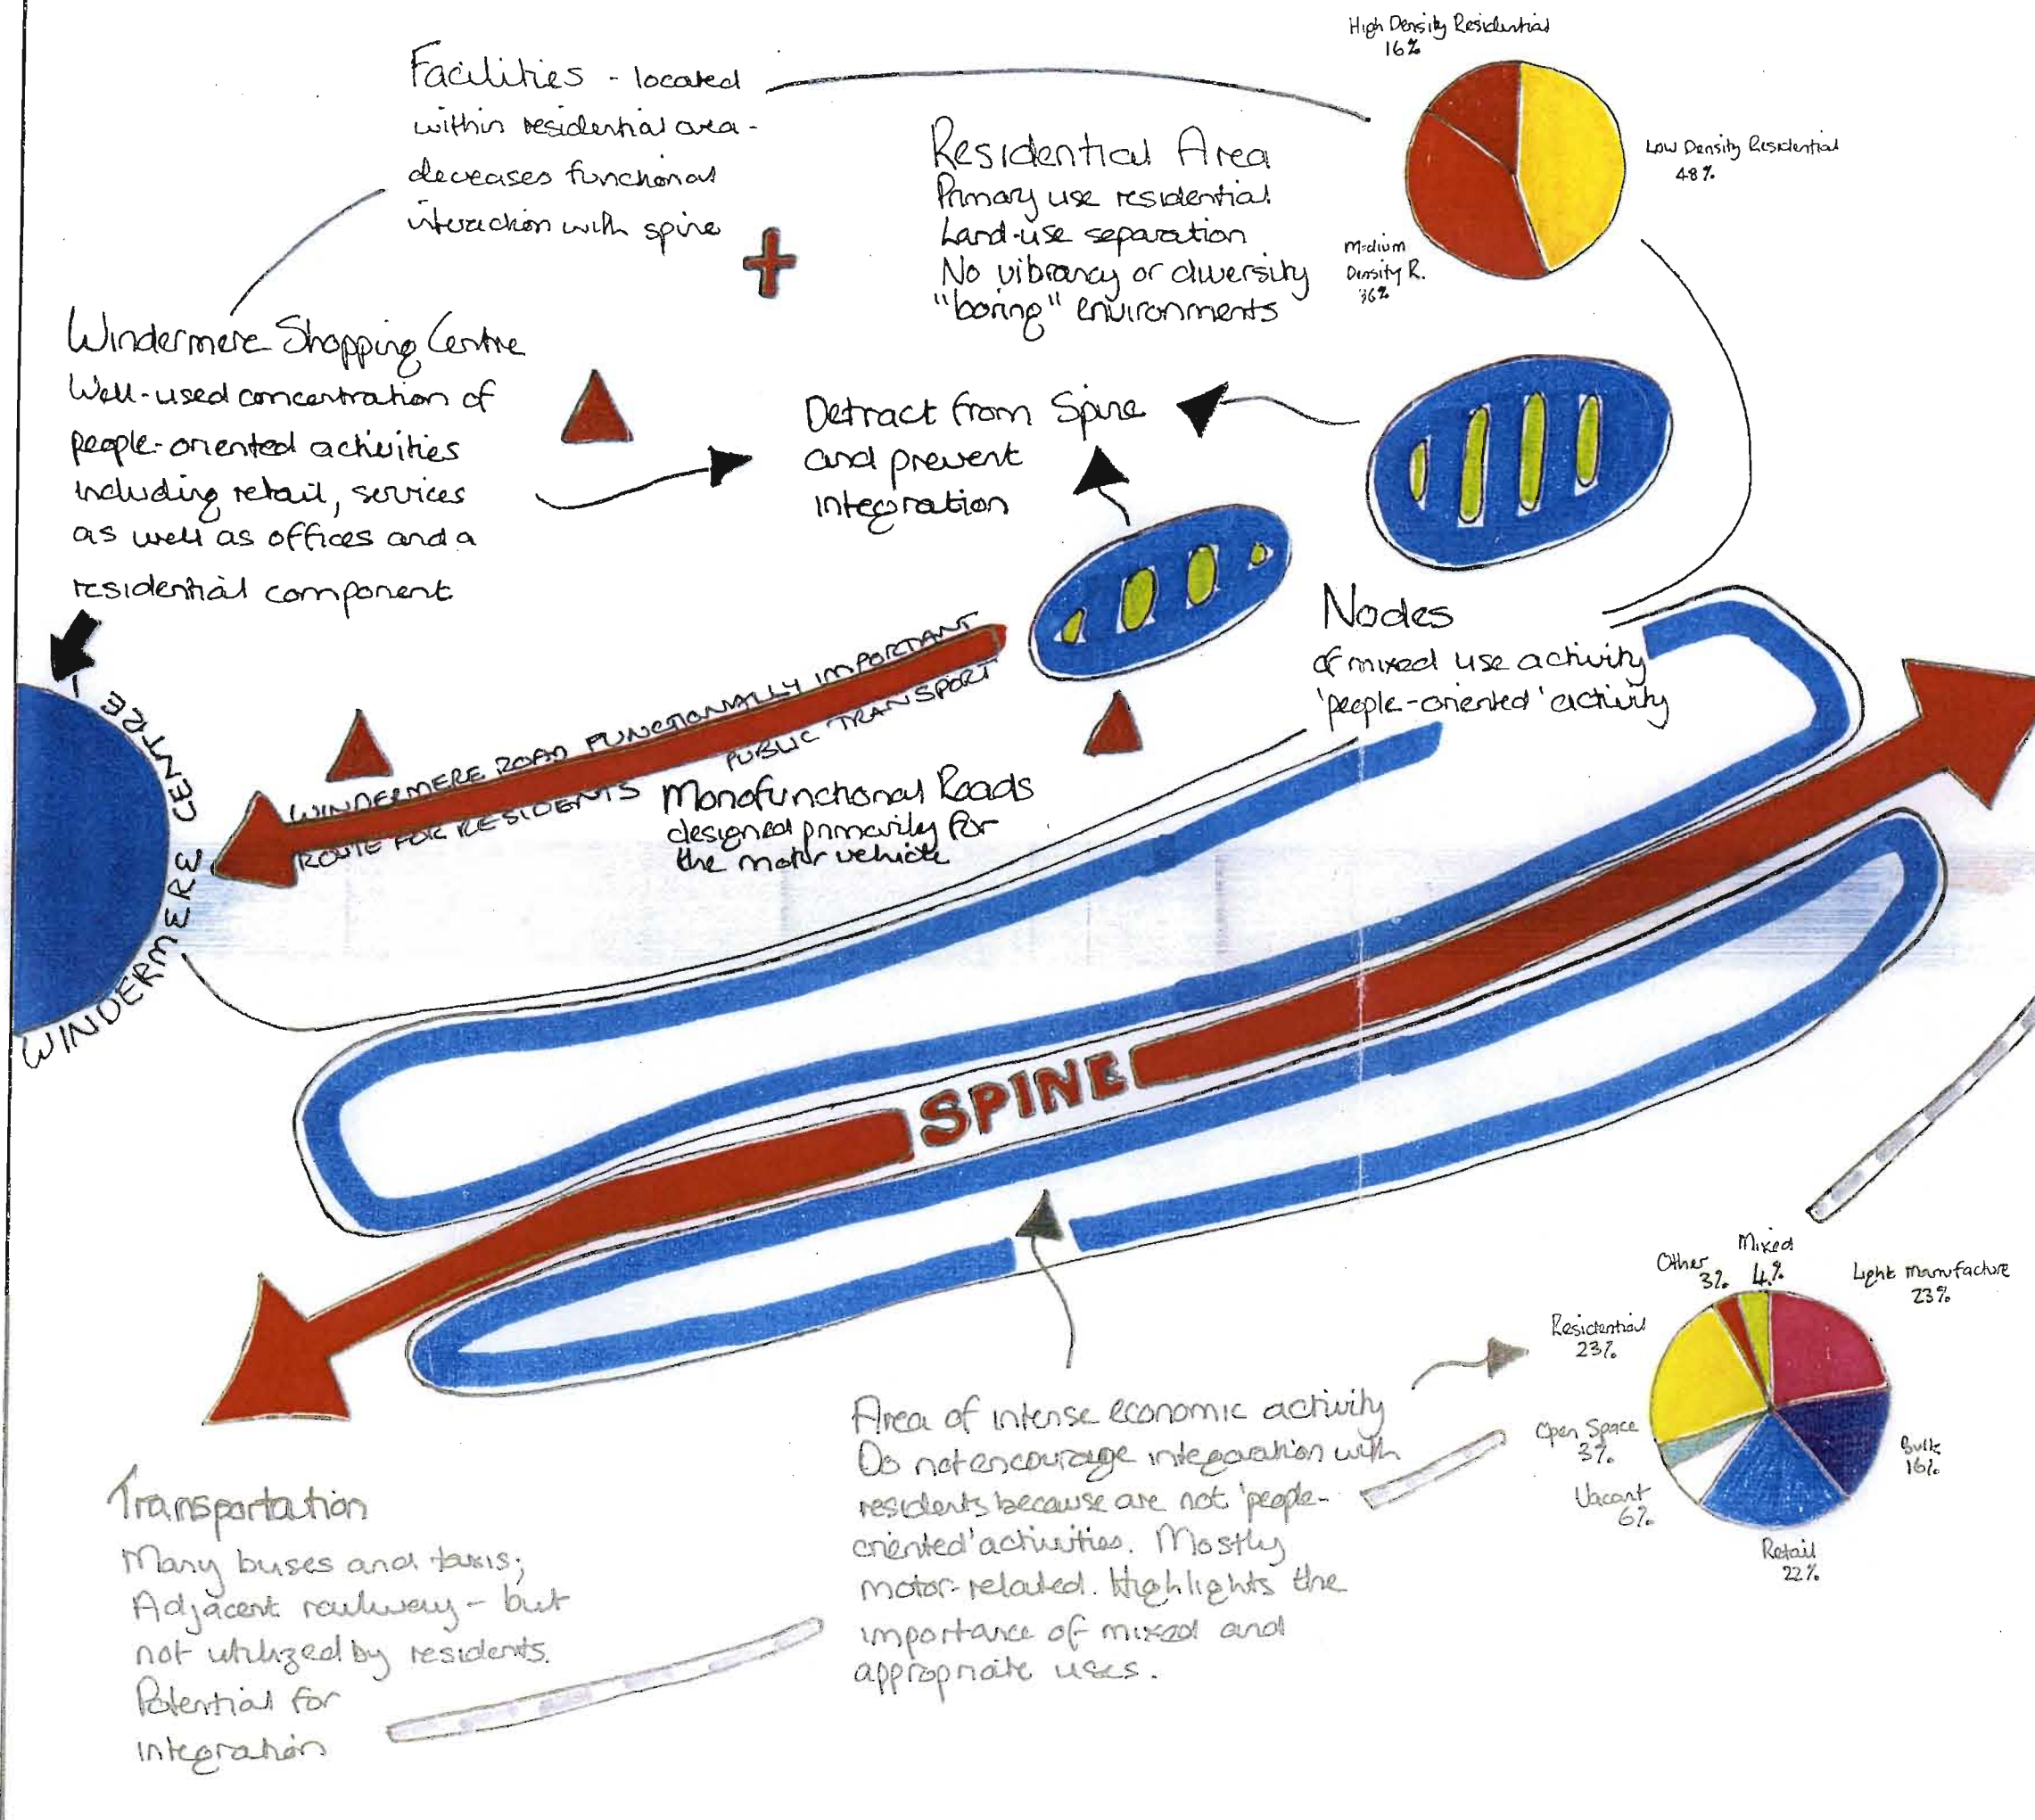 High Density Residential
16%
Low Density Residential
48%
Medium
Density R.
36%
Facilities - located
within residential area -
decreases functional
interaction with spine
Residential Area
Primary use residential
Land-use separation
No vibrancy or diversity
"boring" environments
Windermere Shopping Centre
Well-used concentration of
people-oriented activities
including retail, services
as well as offices and a
residential component
Detract from Spine
and prevent
integration
Nodes
of mixed use activity
'people-oriented' activity
WINDERMERE CENTRE
WINDERMERE ROAD FUNCTIONALLY IMPORTANT
PUBLIC TRANSPORT
ROUTE FOR RESIDENTS
Monofunctional Roads
designed primarily for
the motor vehicle
SPINE
Transportation
Many buses and taxis;
Adjacent railway - but
not utilized by residents.
Potential for
integration
Area of intense economic activity
Do not encourage integration with
residents because are not 'people-
oriented' activities. Mostly
motor-related. Highlights the
importance of mixed and
appropriate uses.
Other
3%
Mixed
4%
Light Manufacture
23%
Residential
23%
Open Space
3%
Vacant
6%
Bulk
16%
Retail
22%